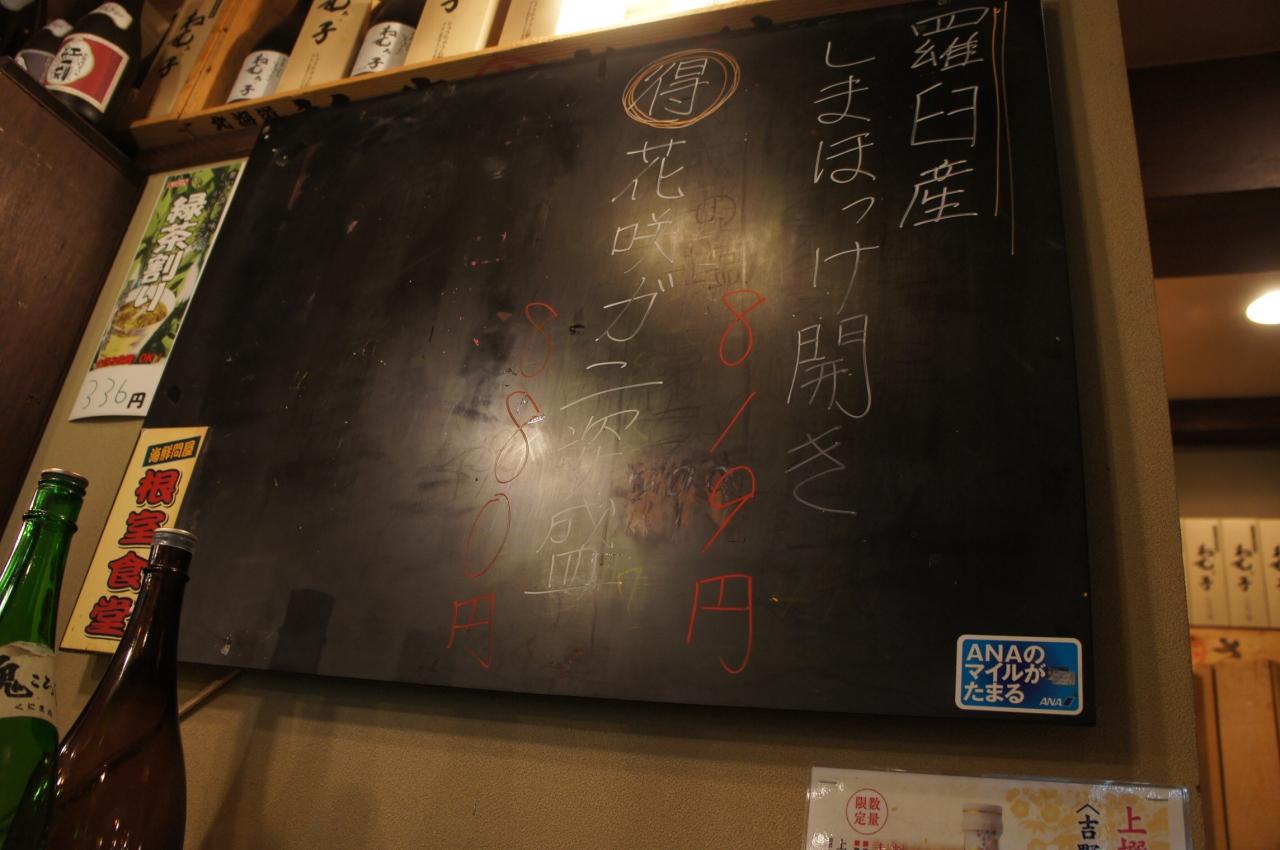 羅臼産
しまほっけ開き
819円
得 花咲ガニ姿盛
880円
ANAの
マイルが
たまる
ANA
緑茶割り
336円
海鮮問屋
根室食堂
ねむろ子
ねむろ子
ねむろ子
限数
定量
上撰